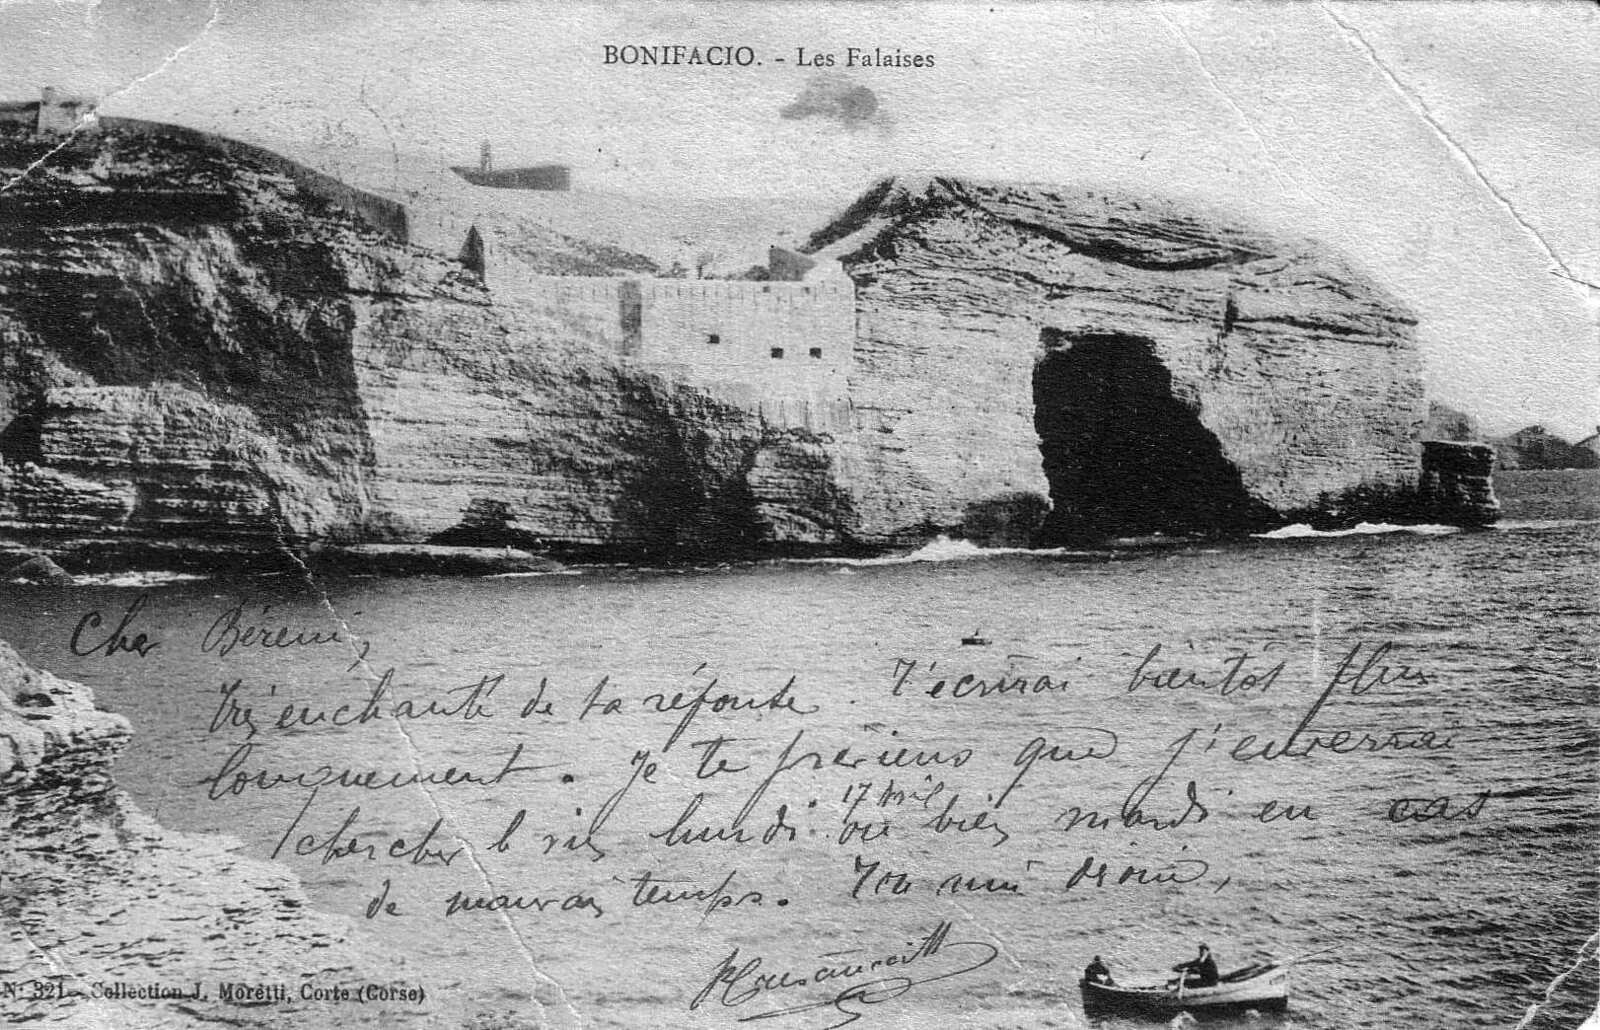 BONIFACIO. - Les Falaises
Cher
Très enchanté de ta réponse. J'écrirai bientôt plus
longuement. Je te préviens que j'enverrai
chercher le vin lundi 17 Avril ou bien mardi en cas
de mauvais temps. Ton ami
N° 321 - Collection J. Moretti, Corte (Corse)